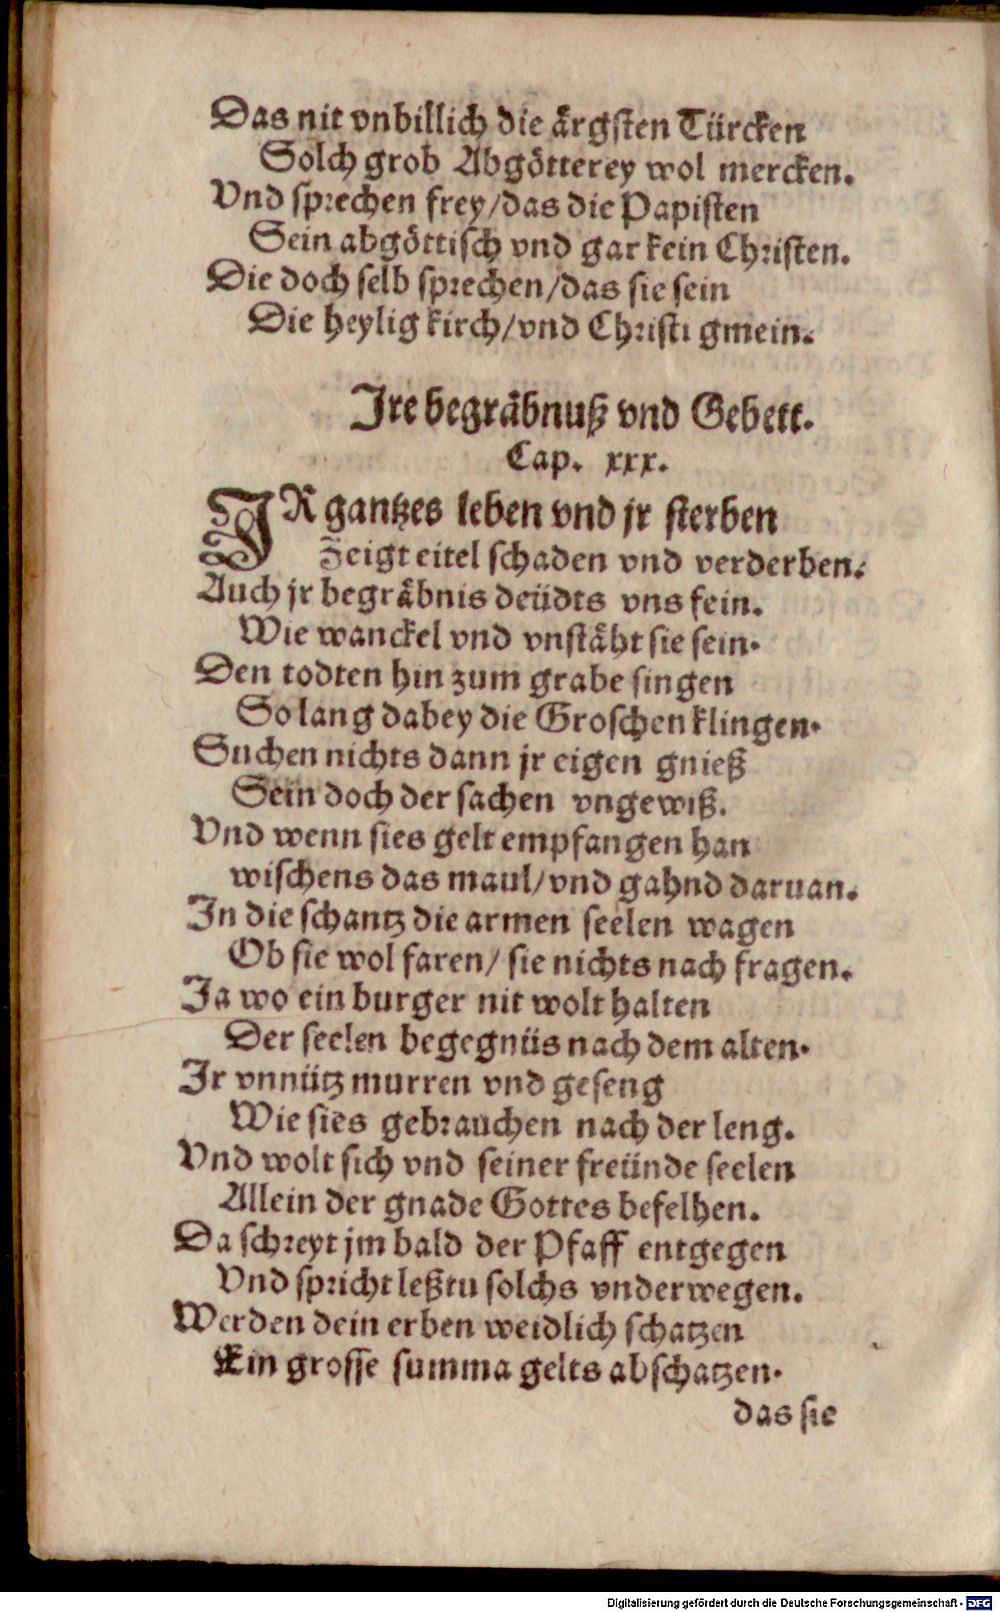 Das nit vnbillich die ärgsten Türcken
Solch grob Abgötterey wol mercken.
Vnd sprechen frey/das die Papisten
Sein abgöttisch vnd gar kein Christen.
Die doch selb sprechen/das sie sein
Die heylig kirch/vnd Christi gmein.
Ire begräbnuß vnd Gebett.
Cap. xxx.
IR gantzes leben vnd jr sterben
Zeigt eitel schaden vnd verderben.
Auch jr begräbnis deüdts vns fein.
Wie wanckel vnd vnstäht sie sein.
Den todten hin zum grabe singen
So lang dabey die Groschen klingen.
Suchen nichts dann jr eigen gnieß
Sein doch der sachen vngewiß.
Vnd wenn sies gelt empfangen han
wischens das maul/vnd gahnd daruan.
In die schantz die armen seelen wagen
Ob sie wol faren/ sie nichts nach fragen.
Ja wo ein burger nit wolt halten
Der seelen begegnüs nach dem alten.
Ir vnnütz murren vnd geseng
Wie sies gebrauchen nach der leng.
Vnd wolt sich vnd seiner freünde seelen
Allein der gnade Gottes befelhen.
Da schreyt jm bald der Pfaff entgegen
Vnd spricht leßtu solchs vnderwegen.
Werden dein erben weidlich schatzen
Ein grosse summa gelts abschatzen.
das sie
Digitalisierung gefördert durch die Deutsche Forschungsgemeinschaft - DFG